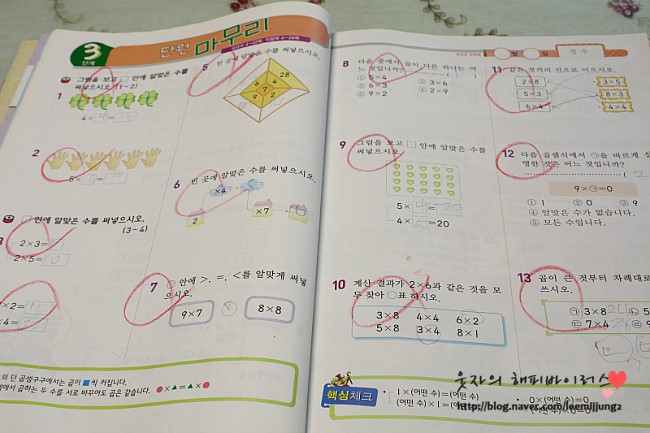 3
단계
단원 마무리
그림을 보고 □ 안에 알맞은 수를
써넣으시오. (1~2)
1
4×
2
5×
□ 안에 알맞은 수를 써넣으시오.
(3~4)
2×3=
2×5=
×2=
×4=
5 빈 곳에 알맞은 수를 써넣으시오.
28
6 4
9 7
2
6 빈 곳에 알맞은 수를 써넣으시오.
×4
2
×7
7 ○ 안에 >, =, <를 알맞게 써넣
으시오.
9×7
8×8
의 단 곱셈구구에서는 곱이 ■씩 커집니다.
에서 곱하는 두 수를 서로 바꾸어도 곱은 같습니다.
●×▲=▲×●
월 일 점수
8 다음 중에서 곱이 다른 하나는 어
느 것입니까?
① 5×4
② 3×6
③ 6×3
④ 2×9
⑤ 9×2
9 그림을 보고 □ 안에 알맞은 수를
써넣으시오.
5×4=20
4× =20
10 계산 결과가 2×6과 같은 것을 모
두 찾아 ○표 하시오.
3×8 4×4 6×2
5×8 3×4 8×1
11 같은 것끼리 선으로 이으시오.
2×8
3×5
5×3
8×3
6×4
4×4
12 다음 곱셈식에서 ㉠을 바르게 설
명한 것은 어느 것입니까?
9×㉠=0
① 1 ② 0 ③ 9
④ 알맞은 수가 없습니다.
⑤ 모든 수입니다.
13 곱이 큰 것부터 차례대로
쓰시오.
㉠ 3×8 24
㉢ 7×4
핵심체크
• 1×(어떤 수)=(어떤 수)
(어떤 수)×1=(어떤 수)
• 0×(어떤 수)=0
(어떤 수)×0=0
웃자의 해피바이러스
http://blog.naver.com/leemijjung2